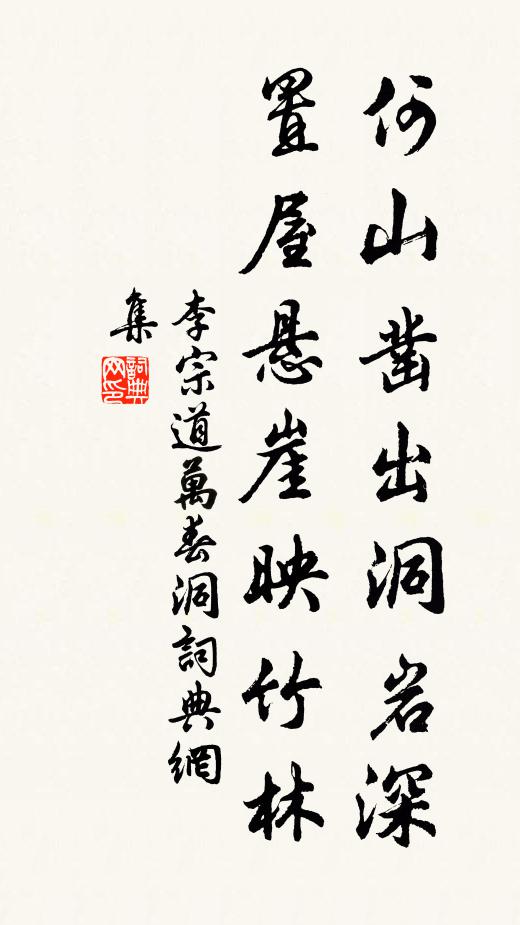 何山凿出洞岩深
置屋悬崖映竹林
李宗道萬春洞詞典網
集
詞典
网印